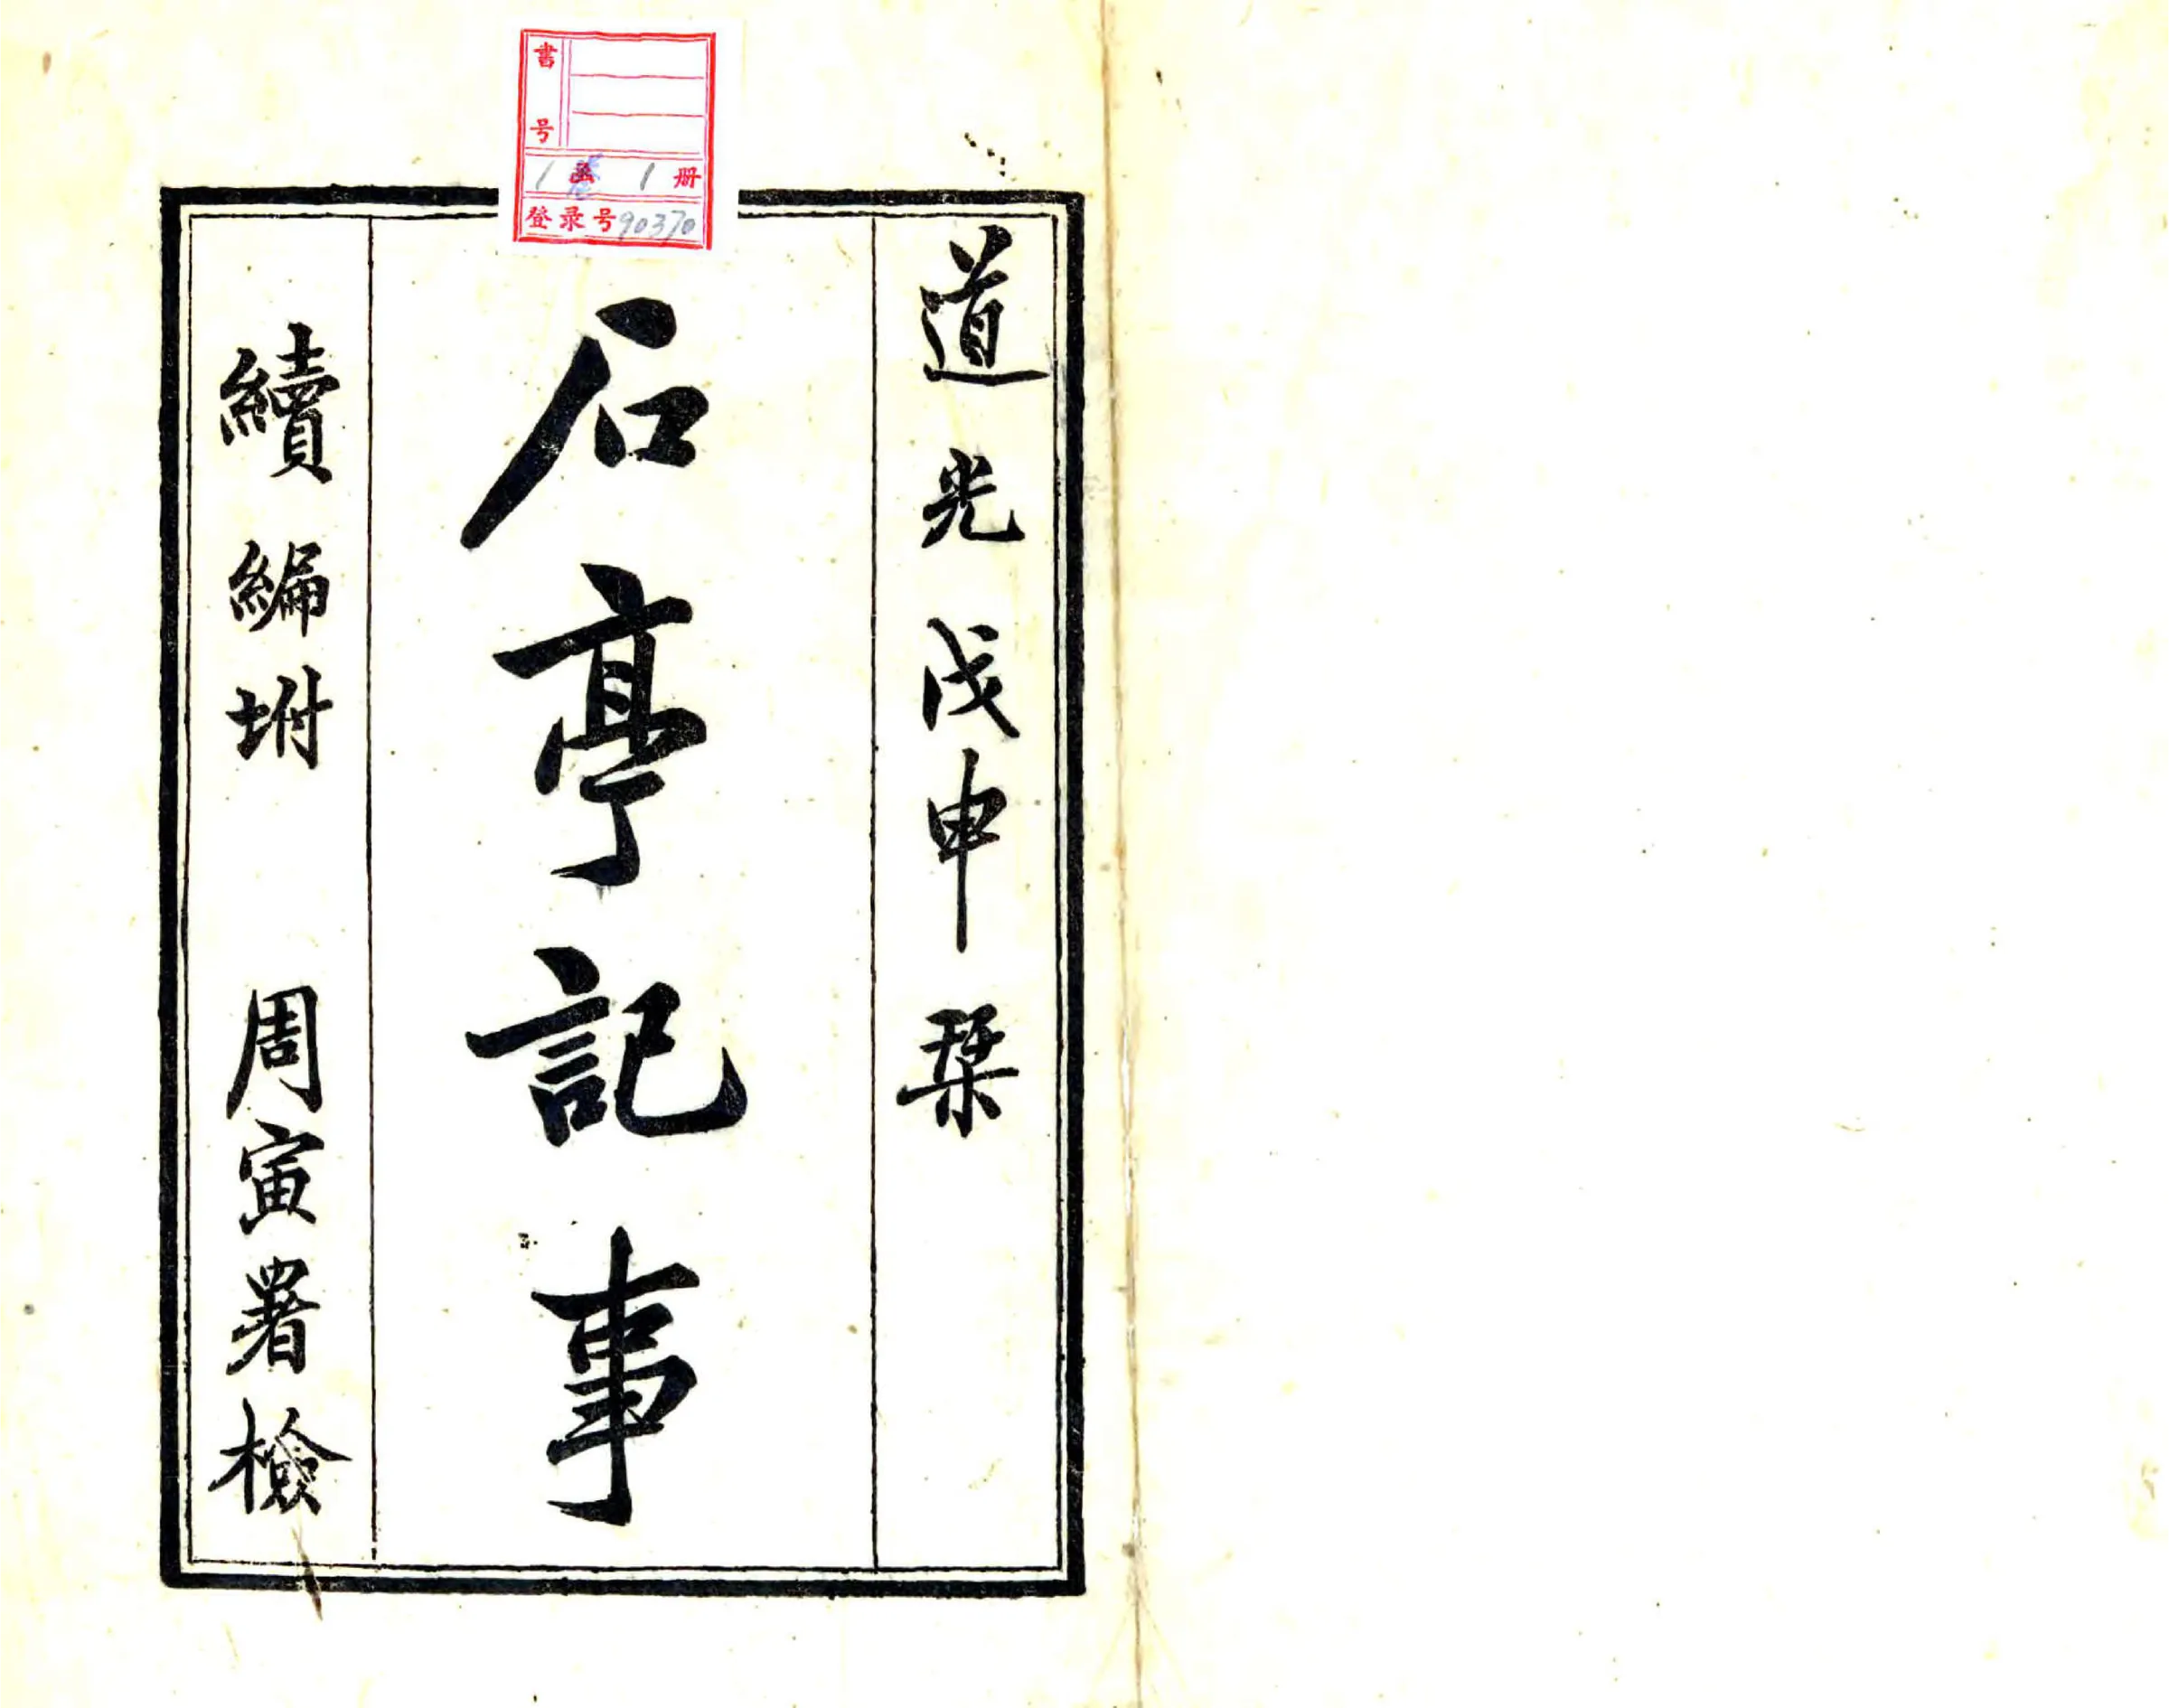 道光戊申栞
石亭記事
續編坿 周寅署檢
書号
1 函 1 册
登录号90370